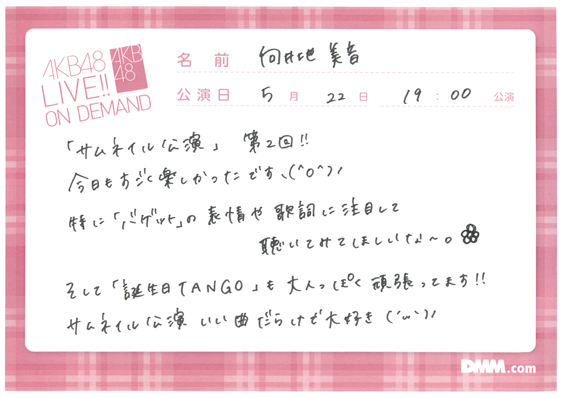 AKB48
LIVE!!
ON DEMAND
AKB
48
名前 向井地 美音
公演日 5月22日 19:00 公演
「サムネイル公演」 第2回!!
今日もすごく楽しかったです、(^o^)ノ
特に「バゲット」の表情や歌詞に注目して
聴いてみてほしいな〜。
そして「誕生日TANGO」も大人っぽく頑張ってます!!
サムネイル公演いい曲だらけで大好き('ω')ノ
DMM.com